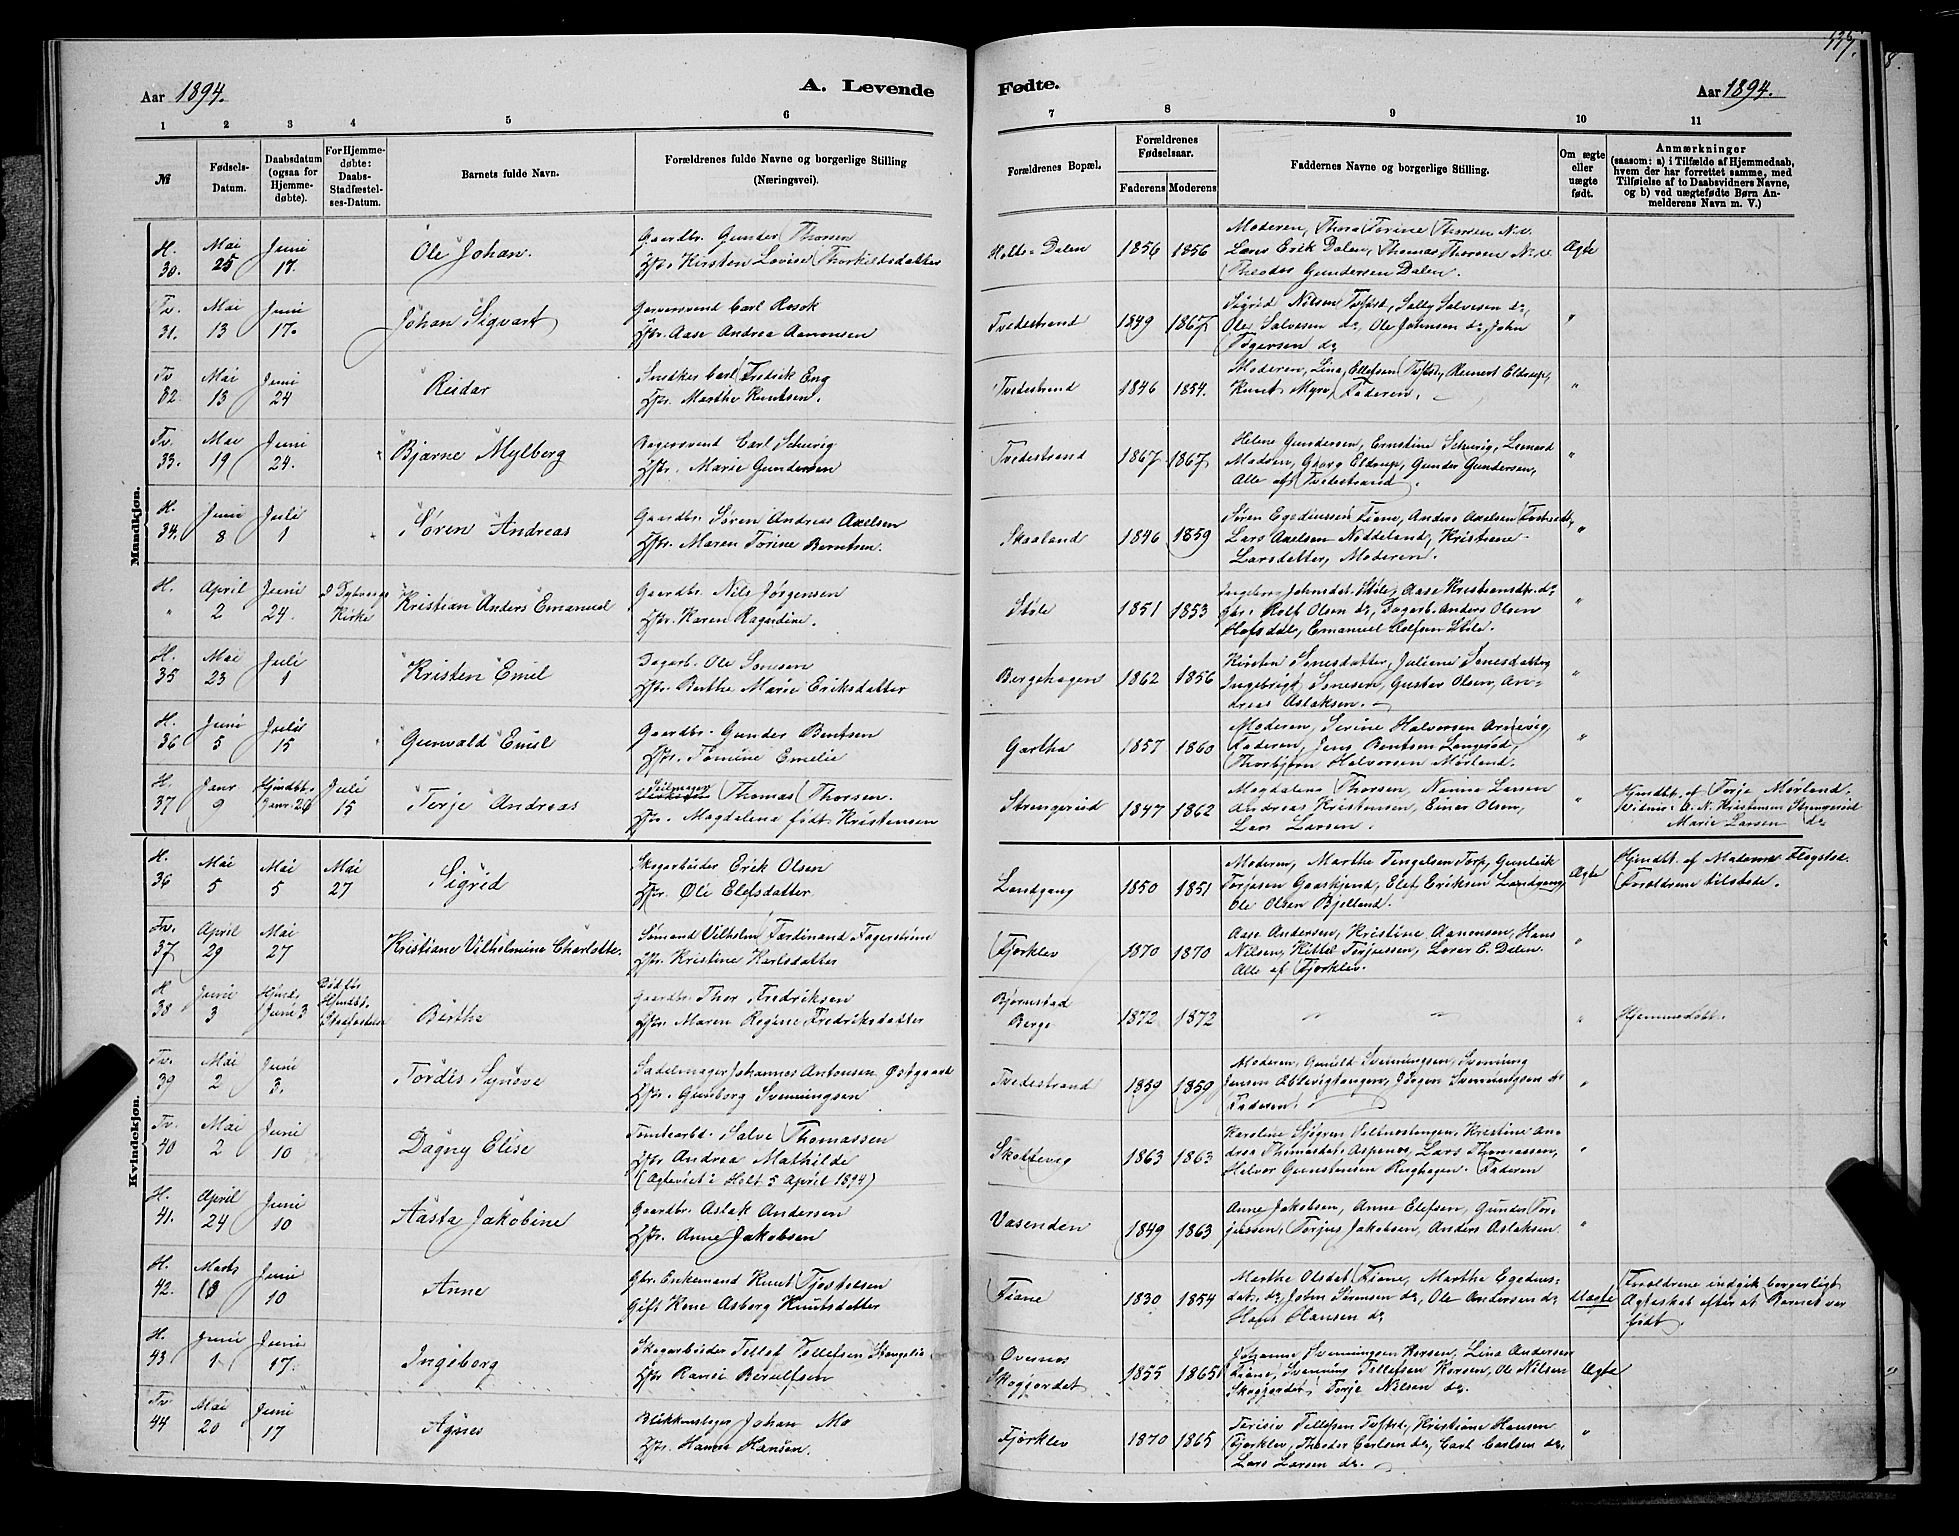 137.
8.
Aar 1894.
A. Levende
Fødte.
Aar 1894.
1 2 3 4 5 6 7 8 9 10 11
№
Fødsels-
Datum.
Daabsdatum
(ogsaa for
Hjemme-
døbte).
For Hjemme-
døbte:
Daabs-
Stadfæstel-
ses-Datum.
Barnets fulde Navn.
Forældrenes fulde Navne og borgerlige Stilling
(Næringsvei).
Forældrenes Bopæl.
Forældrenes
Fødselsaar.
Faderens Moderens
Faddernes Navne og borgerlige Stilling.
Om ægte
eller
uægte
født.
Anmærkninger
(saasom: a) i Tilfælde af Hjemmedaab,
hvem der har forrettet samme, med
Tilføielse af to Daabsvidners Navne,
og b) ved uægtefødte Børn An-
melderens Navn m. V.)
Mandkjøn.
H. 30. Mai 25 Juni 17. Ole Johan.
Gaardbr. Gunder Thorsen
Hstr. Kirsten Lovise Thorkildsdatter
Holte-Dalen 1856 1856
Moderen, Thora Torine Thorsen N.v.
Lars Erik Dalen, Thomas Thorsen N.v.
Theodor Gundersen Dalen.
Ægte
Tv. 31. Mai 13 Juni 17. Johan Sigvart
Garversvend Carl Rosok
Hstr. Aase Andrea Aanonsen
Tvedestrand 1849 1867
Sigrid Nilsen Tvstd, Sally Salvesen do,
Ole Salvesen do, Ole Johnsen do, John
Tøgersen do
"
Tv 32. Mai 13 Juni 24 Reidar
Snedker Carl Fredrik Eng
Hstr. Marthe Knutsen.
Tvedestrand 1846 1854.
Moderen, Lina Ellefsen Tvstd, Reinert Eldrup,
Knut Myre, Faderen.
"
Tv. 33. Mai 19 Juni 24. Bjarne Mylberg
Bagersvend Carl Schurig
Hstr. Marie Gundersen
Tvedestrand 1867 1867
Helene Gundersen, Ernstine Schurig, Leonard
Madsen, Georg Eldrup, Gunder Gundersen,
Alle af Tvedestrand.
"
H. 34. Juni 8 Juli 1 Søren Andreas
Gaardbr. Søren Andreas Axelsen
Hstr. Maren Torine Berntsen.
Skaaland 1846 1859
Søren Egediussen Fiane, Anders Axelsen
Lars Axelsen Nøddeland, Kristiane
Larsdatter, Moderen.
"
H. " April 2 Juni 24. I Dybvaags Kirke Kristian Anders Emanuel
Gaardbr. Nils Jørgensen
Hstr. Karen Ragndine.
Støle 1851 1853
Ingeborg Johnsdat. Støle, Aase Kristensdtr. do
Gbr. Rolf Olsen do, Dagarb. Anders Olsen
Hofsdal, Emanuel Rolfsen Støle.
"
H. 35 Mai 23 Juli 1 Kristen Emil
Dagarb. Ole Sønesen
Hstr. Berthe Marie Eriksdatter
Bergehagen 1862 1856
Kirsten Sønesdatter, Juliane Sønesdatter
Ingebrigt Sønesen, Gustav Olsen, An-
dreas Aslaksen.
"
H. 36 Juni 5 Juli 15 Gunvald Emil
Gaardbr. Gunder Bentsen
Hstr. Tomine Emelie
Gartha 1857 1860
Moderen, Serine Halvorsen Arnevig,
Faderen, Jens Bentsen Langrød,
Thorbjørn Halvorsen Mørland.
"
H. 37 Janr 9 Hjmdbt. Janr. 26 Juli 15 Terje Andreas
Seilmager Thomas Thorsen.
Hstr. Magdalena født Kristensen
Strengereid 1847 1862
Magdalena Thorsen, Nanna Larsen
Andreas Kristensen, Einar Olsen,
Lars Larsen.
"
Hjmdbt. af Torje Mørland.
Vidner: A. N. Kristensen Strengereid
Marie Larsen do
Kvindekjøn.
H. 36 Mai 5 Mai 5 Mai 27 Sigrid
Skogarbeider Erik Olsen
Hstr. Øli Elefsdatter
Landgang 1850 1851
Moderen, Marthe Tengelsen Torp, Gunleik
Torjusen Gaaskjend, Elef Eriksen Landgang
Ole Olsen Bjelland.
Ægte
Hjmdbt. af Madame Flogstad.
Forældrene tilstede.
Tv. 37 April 29 Mai 27 Kristiane Vilhelmine Charlotte.
Sømand Vilhelm Ferdinand Fagerstrøm
Hstr. Kristine Karlsdatter
Fjorklev 1870 1870
Aase Andersen, Kristine Aanonsen, Hans
Nilsen, Kittel Torjussen, Lars E. Dalen
Alle af Fjorklev.
"
H 38 Juni 3 Hjmd. Juni 3 Død før Hjmdbt. Stadfæstelse Birthe
Gaardbr. Thor Fredriksen
Hstr. Maren Regine Fredriksdatter
Bjørnstad
Berge 1872 1872
" "
"
Hjemmedøbt.
Tv. 39 Mai 2 Juni 3. Tordis Synøve
Sadelmager Johannes Antonsen Østgaard
Hstr. Gunborg Svenningsen
Tvedestrand 1859 1859
Moderen, Gunild Svenningsen, Svenning
Jensen Ablevigtangen, Jørgen Svenningsen do
Faderen.
"
Tv. 40 Mai 2 Juni 10 Dagny Elise
Tomtearbt. Salve Thomassen
Hstr. Andrea Mathilde
(Ægteviet i Holt 5 April 1894)
Skottevig 1863 1863
Karoline Sjøgren Vatnestangen, Kristine An-
drea Thomasdat. Aspenes, Lars Thomassen,
Halvor Gunstensen Rughagen. Faderen
"
H. 41. April 24 Juni 10 Aasta Jakobine
Gaardbr. Aslak Andersen
Hstr. Anne Jakobsen
Vasenden 1849 1863
Anne Jakobsen, Anne Elefsen, Gunder Tor-
jussen, Torjus Jakobsen, Anders Aslaksen
"
H. 42. Marts 13 Juni 10 Anne
Gbr. Enkemand Knut Tjøstelsen
Gift Kone Asborg Knutsdatter
Fiane 1830 1854
Marthe Olsdat Fiane, Marthe Egedius-
dat. do, John Sørensen do, Ole Andersen do
Hans Hansen do
Uægte
Forældrene indgik borgerligt
Ægteskab efter at Barnet var
født.
H. 43 Juni 1 Juni 17. Ingeborg
Skogarbeider Tellef Tellefsen Stangelia
Hstr Ranei Berulfsen
Ovesnes
Skoggjordet 1855 1865
Johanne Svenningsen Korsen, Lina Andersen
Fiane, Svenning Tellefsen Korsen, Ole Nilsen
Skoggjordet, Torje Nilsen do.
Ægte
Tv 44 Mai 20 Juni 17 Agnes
Blikkenslager Johan Mo
Hstr. Hanna Hansen.
Fjorklev 1870 1865
Terisie Tellefsen Tvstrd, Kristiane Hansen
Fjorklev, Theodor Carlsen do, Carl Carlsen do.
Lars Larsen do.
"